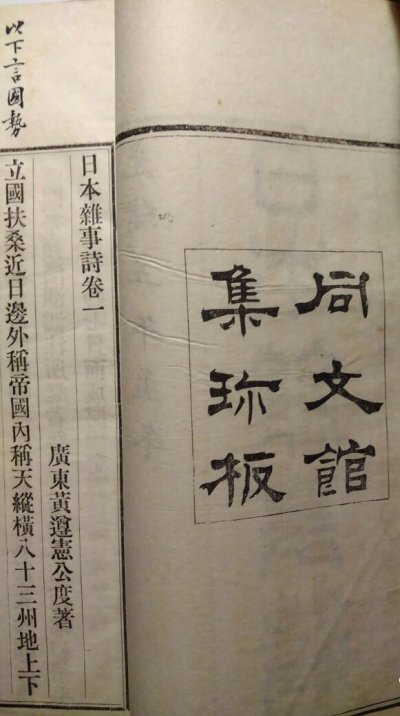 同文館
集珍板
以下言國勢
日本雜事詩卷一
廣東黃遵憲公度著
立國扶桑近日邊外稱帝國內稱天縱橫八十三州地上下